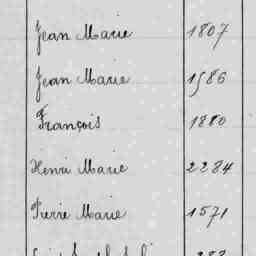 Jean Marie 1807
Jean Marie 1586
François 1880
Henri Marie 2284
Pierre Marie 1571